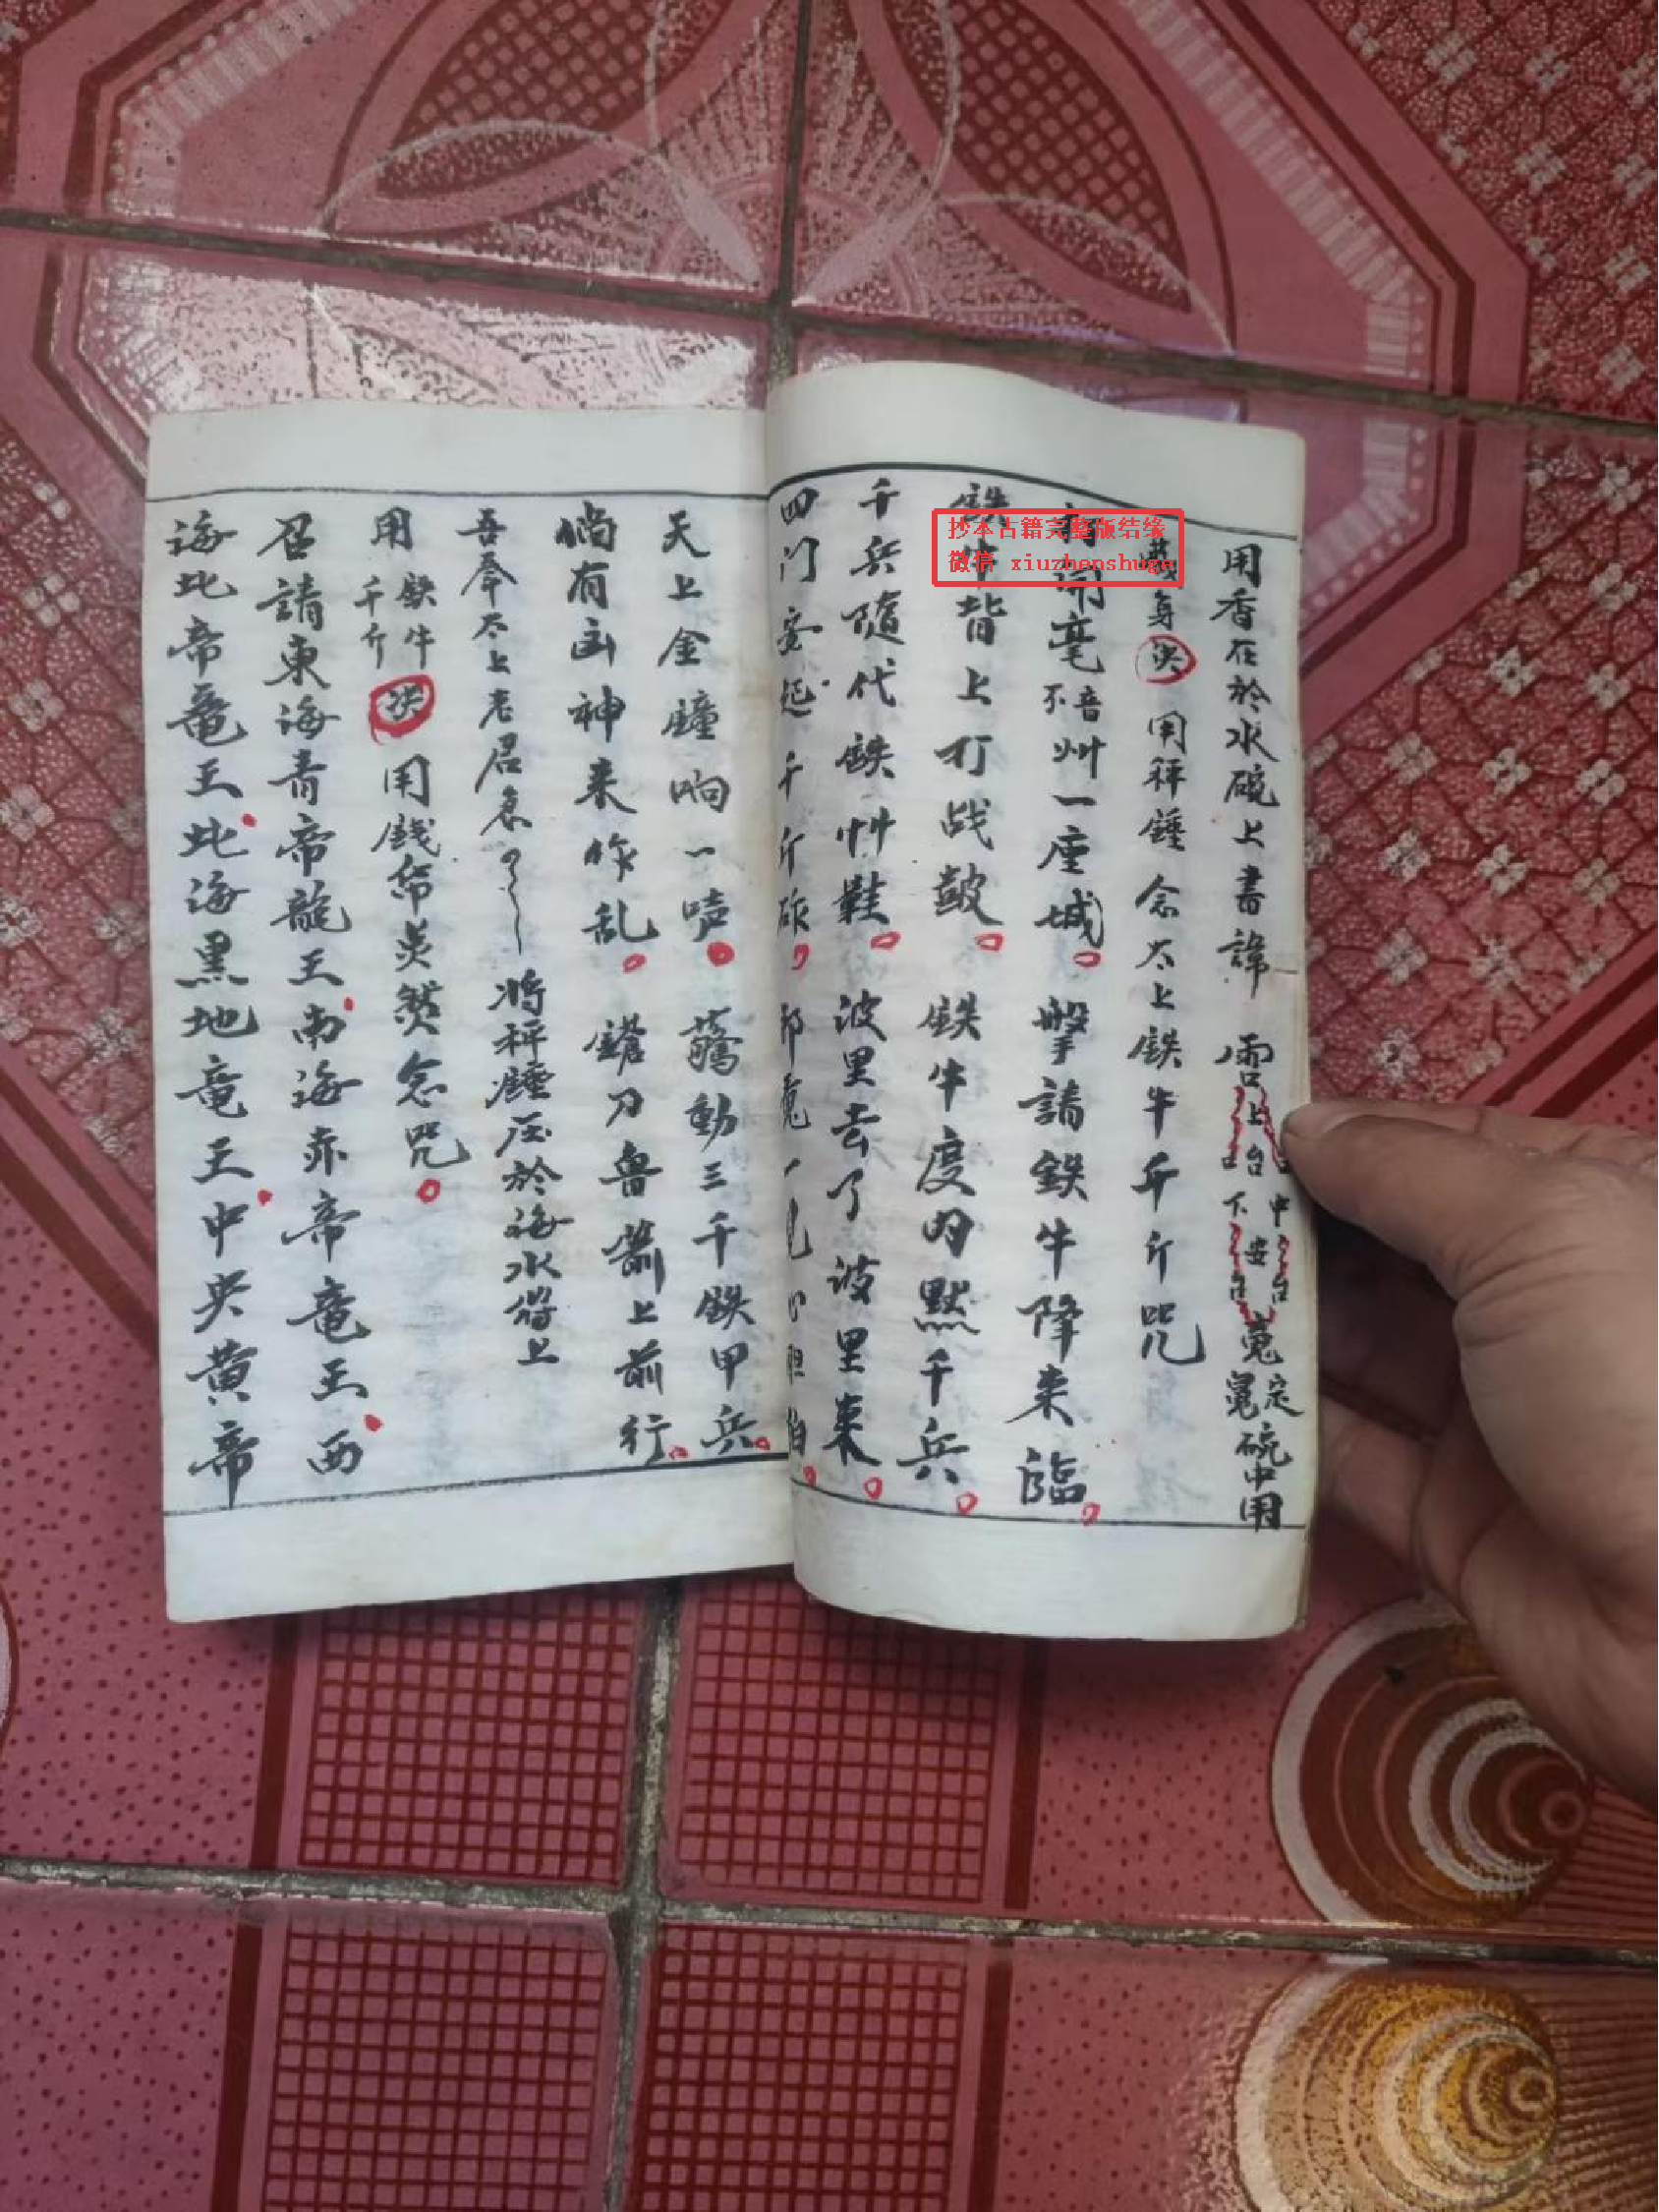 用香在於水碗上書諱 上台 中台 下台 安 定碗中用
身决 用秤錘念太上鉄牛千斤咒
開毫不音州一座城 擊請鉄牛降来臨
鉄牛背上打战鼓 鉄牛度内默千兵
千兵隨代鉄艸鞋 波里去了波里来
四门安起千斤砍 邪一見心胆
天上金鐘响一声 驚動三千鉄甲兵
倘有凶神来作乱 鎗刀魯箭上前行
吾奉太上老君急 将秤錘压於海水碍上
用鉄牛千斤决 用錢帋炎焚念咒
召請東海青帝龍王南海赤帝竜王西
海北帝竜王北海黒地竜王中央黄帝
抄本古籍完整版结缘
微信 xiuzhenshuge